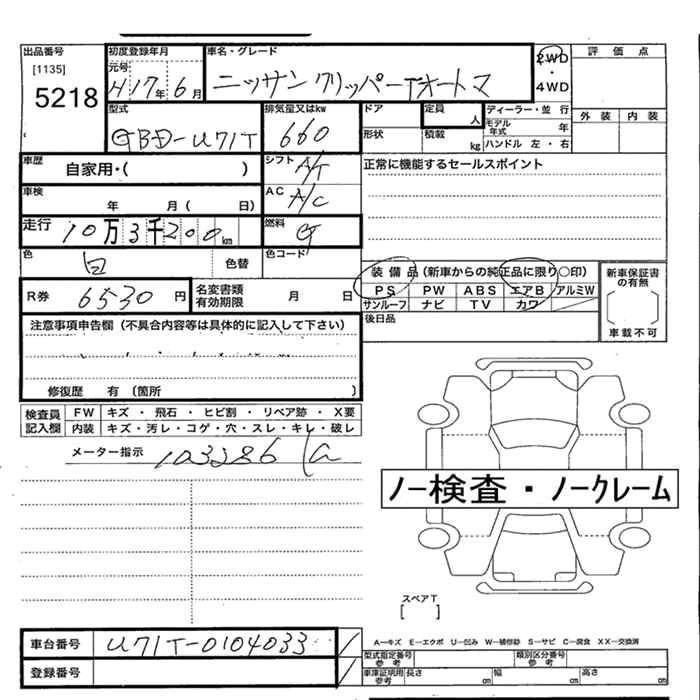 出品番号
[1135]
5218
初度登録年月
元号
H17年6月
車名・グレード
ニッサン クリッパー
2WD
・
4WD
評価点
外装 内装
型式
GBD-U71T
排気量又はkw
660
ドア
形状
定員 人
積載 kg
ディーラー・並行
モデル年式 年
ハンドル 左・右
車歴 自家用・( )
シフト A/T
正常に機能するセールスポイント
車検 年 月( 日)
AC A/C
走行 10万3千200km
燃料 G
色 白 色替
色コード
装備品(新車からの純正品に限り○印)
PS PW ABS エアB アルミW
サンルーフ ナビ TV カワ
後日品
新車保証書の有無
車載不可
R券 6530円
名変書類有効期限 月 日
注意事項申告欄(不具合内容等は具体的に記入して下さい)
修復歴 有(箇所
検査員記入欄
FW キズ・飛石・ヒビ割・リペア跡・X要
内装 キズ・汚レ・コゲ・穴・スレ・キレ・破レ
メーター指示 103286
ノー検査・ノークレーム
スペアT
[ ]
A−キズ E−エクボ U−凹み W−補修跡 S−サビ C−腐食 XX−交換済
車台番号 U71T-0104033
登録番号
型式指定番号参考
類別区分番号参考
車庫証明用参考 長さ cm 幅 cm 高さ cm